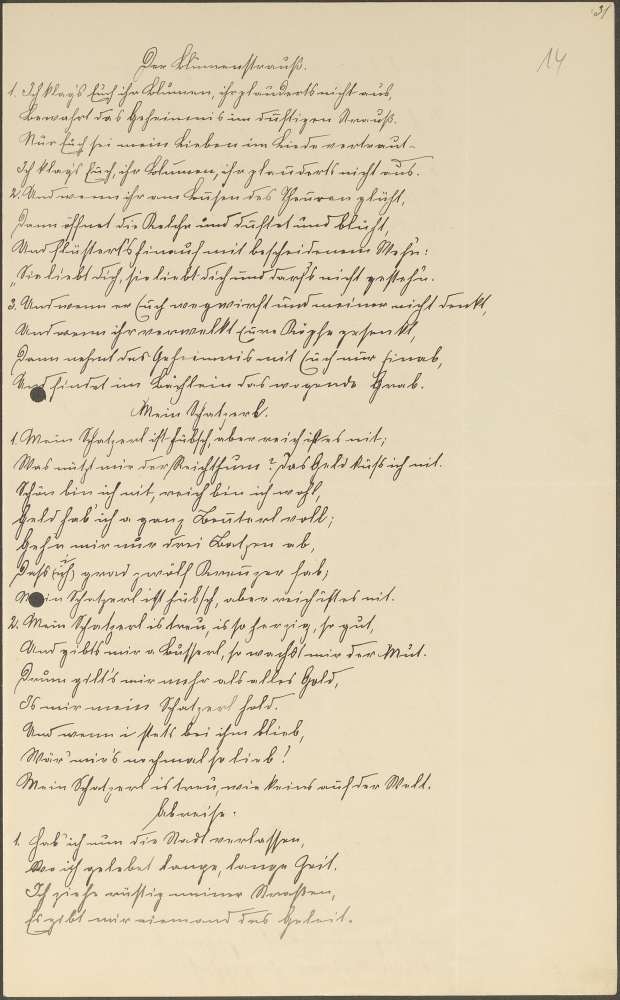 3/
14
Der Blumenstrauß.
1. Ich klag's Euch ihr Blumen, ihr plauderts nicht aus,
Bewahrt das Geheimnis im duftigen Strauß.
Nur Euch sei mein Lieben im Liede vertraut –
Ich klag's Euch, ihr Blumen, ihr plaudert's nicht aus.
2. Und wenn ihr am Busen des Theuren glüht,
Dann öffnet die Kelche und duftet und blüht,
Und flüstert's hinauf mit bescheidenem Wehn:
"Sie liebt dich, sie liebt dich und darf's nicht gestehn.
3. Und wenn er Euch wegwirft und meiner nicht denkt,
Und wenn ihr verwelkt Eure Köpfe gesenkt,
Dann nehmt das Geheimnis mit Euch nur hinab,
Und findet im Bächlein das wogende Grab.
Mein Schatzerl.
1. Mein Schatzerl ist hübsch, aber reich ist es nit;
Was nützt mir der Reichthum? Das Geld küss ich nit.
Schön bin ich nit, reich bin ich wohl,
Geld hab' ich a ganz Beuterl voll;
Gehn mir nur drei Batzen ab,
Dass ich grad zwölf Kreuzer hab;
Mein Schatzerl ist hübsch, aber reich ist es nit.
2. Mein Schatzerl is treu, is so herzig, so gut,
Und gibts mir a Busserl, so wachst mir der Mut.
Drum gilt's mir mehr als alles Gold,
Is mir mein Schatzerl hold.
Und wenn i stets bei ihm blieb,
Wär' mir's nochmal so lieb!
Mein Schatzerl is treu, wie keins auf der Welt.
Abreise.
1. Hab' ich nun die Stadt verlassen,
Wo ich gelebet lange, lange Zeit.
Ich ziehe rüstig meiner Straßen,
Es gibt mir niemand das Geleit.